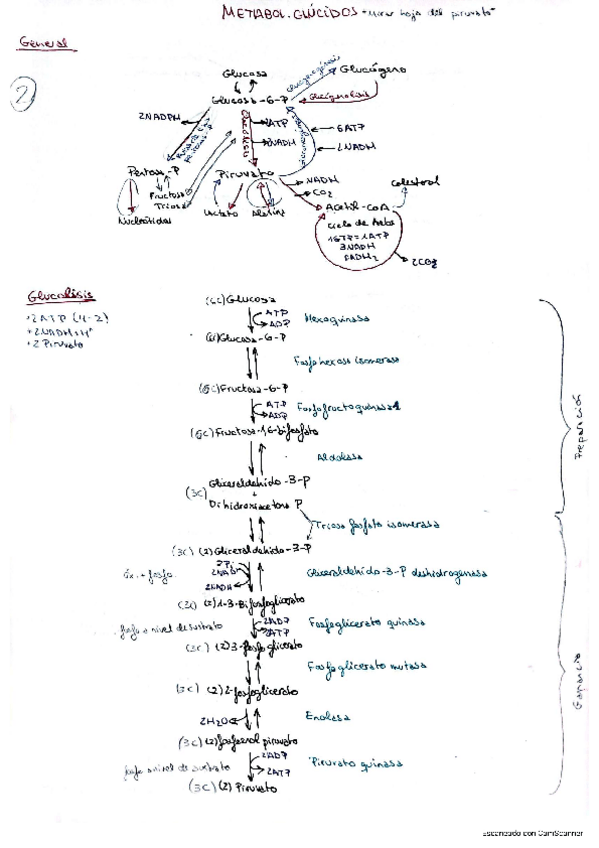 METABOL. GLÚCIDOS *Mirar hoja del piruvato*
General
2
Glucosa
Glucosa-6-P
Glucogénesis
Glucógeno
Glucogenolisis
2NADPH
Glucolisis
2ATP
2NADH
6ATP
2NADH
Pentosa-P
Fructosa
Triosa
Nucleótidos
Piruvato
Lactato
Alanina
NADH
CO2
Acetil-CoA
Colesterol
Ciclo de Krebs
1GTP=1ATP
3NADH
FADH2
2CO2
Glucolisis
+2ATP (4-2)
+2NADH+H+
+2 Piruvato
(6C) Glucosa
ATP
ADP
Hexoquinasa
(6C) Glucosa-6-P
Fosfohexosa isomerasa
(6C) Fructosa-6-P
ATP
ADP
Fosfofructoquinasa 1
(6C) Fructosa-1,6-bifosfato
Aldolasa
Preparación
(3C) Gliceraldehído-3-P
+
Dihidroxiacetona P
Triosa fosfato isomerasa
(3C) (2) Gliceraldehído-3-P
2Pi
2NAD+
2NADH
óx. + fosfo.
Gliceraldehído-3-P deshidrogenasa
(3C) (2) 1-3-Bifosfoglicerato
fosfo a nivel de sustrato
2ADP
2ATP
Fosfoglicerato quinasa
(3C) (2) 3-fosfoglicerato
Fosfoglicerato mutasa
(3C) (2) 2-fosfoglicerato
2H2O
Enolasa
Ganancia
(3C) (2) fosfoenol piruvato
fosfo a nivel de sustrato
2ADP
2ATP
Piruvato quinasa
(3C) (2) Piruvato
Escaneado con CamScanner